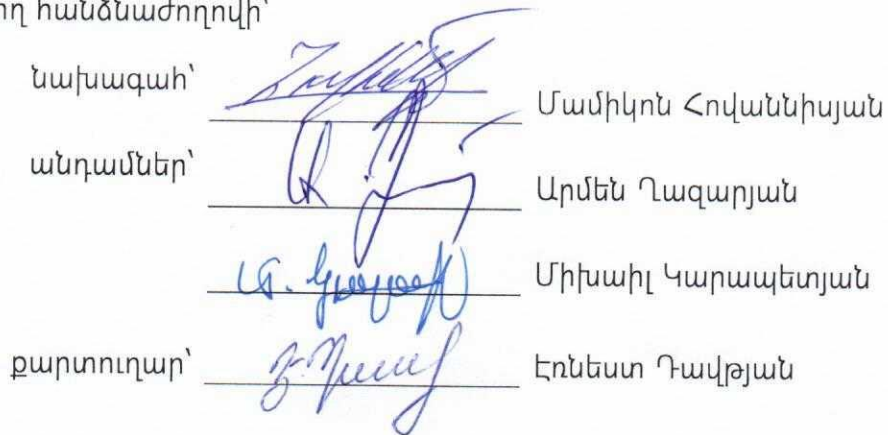 հանձնաժողովի՝
նախագահ՝ Մամիկոն Հովաննիսյան
անդամներ՝ Արմեն Ղազարյան
Միխաիլ Կարապետյան
քարտուղար՝ Էռնեստ Դավթյան